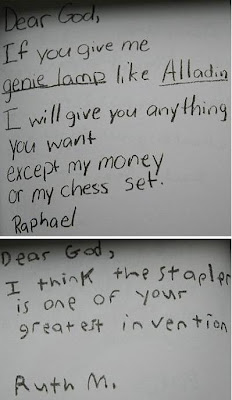 Dear God,
If you give me
genie lamp like Alladin
I will give you anything
you want
except my money
or my chess set.
Raphael
Dear God,
I think the stapler
is one of your
greatest invention
Ruth M.